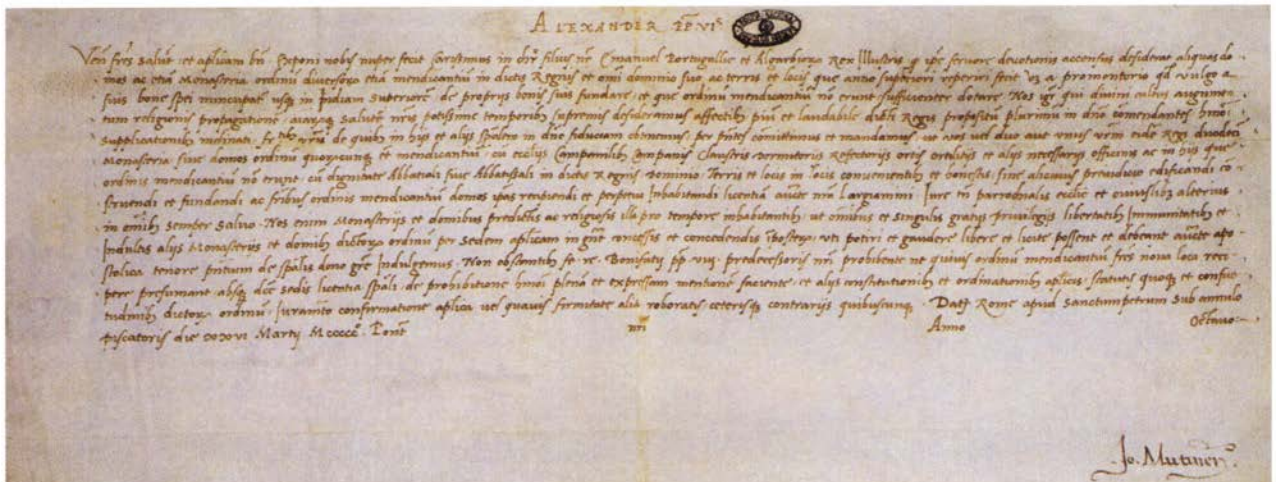 ALEXANDER PP VIs
Ven fres salut et aplicam bn Exponi nobis nuper fecit carissimus in chro filius nr Emanuel Portugallie et Algarbiorz Rex Illustris q ipse fervore devotionis accensus desiderio aliquas do
mos ac etia Monasteria ordinu diversorz etia mendicantiu in dictis Regnis et omi dominio suo ac terris et locis que anno superiori reperiri fecit a promontorio qd vulgo
bone spei nuncupat usq in Indiam superiore de proprijs bonis suis fundare et que ordinu mendicantiu no erunt sufficienter dotare Nos igr qui divini cultus augmen
tum religionis propagatione salute nris potissime temporib supremis desideramus affectib piu et laudabile dicti Regis propositu plurimu in dno comendantes
supplicationib inclinati de quib in hijs et alijs spalem in dno fiduciam obtinemus per pntes comittimus et mandamus ut vos vel duo aut unus vrm eide Regi duodeci
Monasteria sive domos ordinu quorzcunq et mendicantiu cu ecclijs Campanilib Campanis Claustris dormitorijs Refectorijs ortis ortalitijs et alijs necessarijs officinis ac in hijs que
ordinis mendicantiu no erunt cu dignitate Abbatiali sive Abbatissali in dictis Regnis dominio Terris et locis in locis convenientib et honestis sine alicuius preiudicio edificandi co
struendi et fundandi ac fribus ordinis mendicantiu domos ipas recipiendi et perpetuo Inhabitandi licentia aucte nra Largiamini Iure tn parrochialis ecclie et cuiuslibz alterius
in omib semper salvo Nos enim Monasterijs et domibus predictis ac religiosis illa pro tempore inhabitantib ut omibus et singulis gratijs Privilegijs libertatib Immunitatib et
Indultis alijs Monasterijs et domib dictorz ordinu per sedem aplicam in gne concessis et concedendis iposterz uti potiri et gaudere libere et licite possint et debeant aucte apo
stolica tenore pntium de spalis dono gre Indulgemus Non obstantib fe. re. Bonifatij pp viij predecessoris nri prohibente ne quivis ordinu mendicantiu fres nova loca reci
pere presumant absq dce sedis licentia spali de prohibitione hmoi plena et expressam mentione faciente et alijs constitutionib et ordinationib aplicis statutis quoq et consue
tudinib dictorz ordinu Iuramto confirmatione aplica vel quavis firmitate alia roboratis ceterisq contrarijs quibuscunq Datz Rome apud Sanctumpetrum Sub annulo
piscatoris die xxvi Martij Mccccc° Pont nri Anno Octavo
Jo. Mutinen